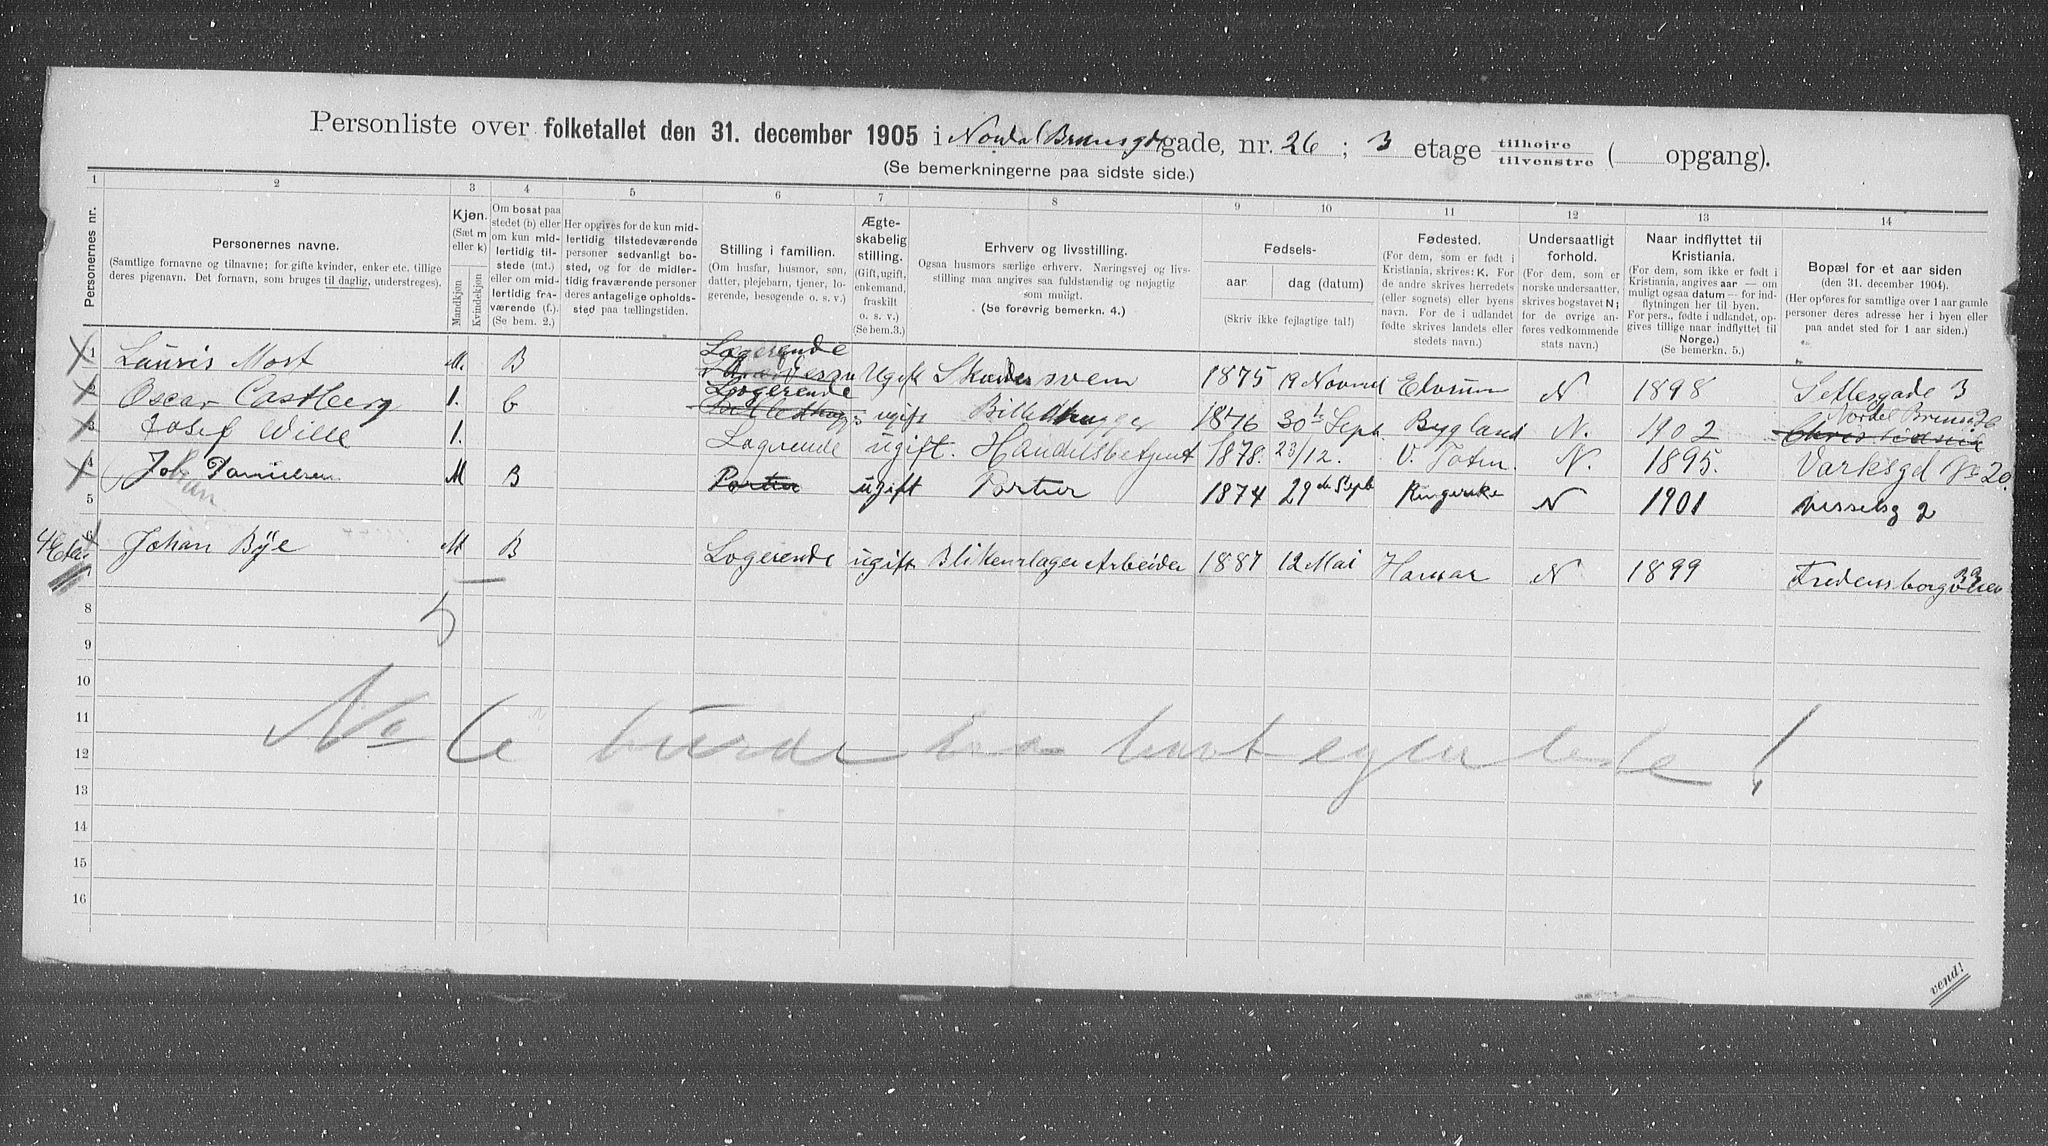 Personliste over folketallet den 31. december 1905 i Nordal Brunsgd gade, nr. 26 ; 3 etage tilhøire tilvenstre ( opgang).
(Se bemerkningerne paa sidste side.)
1 2 3 4 5 6 7 8 9 10 11 12 13 14
Personernes nr.
Personernes navne.
(Samtlige fornavne og tilnavne; for gifte kvinder, enker etc. tillige deres pigenavn. Det fornavn, som bruges til daglig, understreges).
Kjøn.
(Sæt m eller k)
Mandkjøn
Kvindekjøn
Om bosat paa stedet (b) eller om kun midlertidig tilstede (mt.) eller om midlertidig fraværende (f.). (Se bem. 2.)
Her opgives for de kun midlertidig tilstedeværende personer sedvanligt bosted, og for de midlertidig fraværende personer deres antagelige opholdssted paa tællingstiden.
Stilling i familien.
(Om husfar, husmor, søn, datter, plejebarn, tjener, logerende, besøgende o. s. v.)
Ægteskabelig stilling.
(Gift, ugift, enkemand, fraskilt o. s. v.) (Se bem. 3.)
Erhverv og livsstilling.
Ogsaa husmors særlige erhverv. Næringsvej og livsstilling maa angives saa fuldstændig og nøjagtig som muligt.
(Se forøvrig bemerkn. 4.)
Fødsels-
aar
dag (datum)
(Skriv ikke fejlagtige tal!)
Fødested.
(For dem, som er født i Kristiania, skrives: K. For de andre skrives herredets (eller sognets) eller byens navn. For de i udlandet fødte skrives landets eller stedets navn.)
Undersaatligt forhold.
(For dem, som er norske undersaatter, skrives bogstavet N; for de øvrige anføres vedkommende stats navn.)
Naar indflyttet til Kristiania.
(For dem, som ikke er født i Kristiania, angives aar — om muligt ogsaa datum — for indflytningen her til byen. For pers., fødte i udlandet, opgives tillige naar indflyttet til Norge.)
(Se bemerkn. 5.)
Bopæl for et aar siden
(den 31. december 1904).
(Her opføres for samtlige over 1 aar gamle personer deres adresse her i byen eller paa andet sted for 1 aar siden.)
1 Lauris Most M. B Logerende Ugift Skrædersvem 1875 19 Novmb Elverum N 1898 Setlesgade 3
2 Oscar Castberg 1. b Logerende ugift Billedhugger 1876 30 Sept Bygland N. 1902 Nordal Bruns 26
3 Josef Wille 1. Logerende ugift. Handelsbetjent 1878. 23/12. V. Toten. N. 1895. Varksgd No 20.
4 Johan Danielsen M B Portier ugift Portier 1874 29 de Sept Ringerike N 1901 nisselsg 2
5
4 Etg 6 Johan Bye M B Logerende ugift Blikenslager Arbeider 1887 12 Mai Hamar N 1899 Fredensborgveien
7
5
8
9
10
No 6 burde ha havt egen liste!
11
12
13
14
15
16
vend!